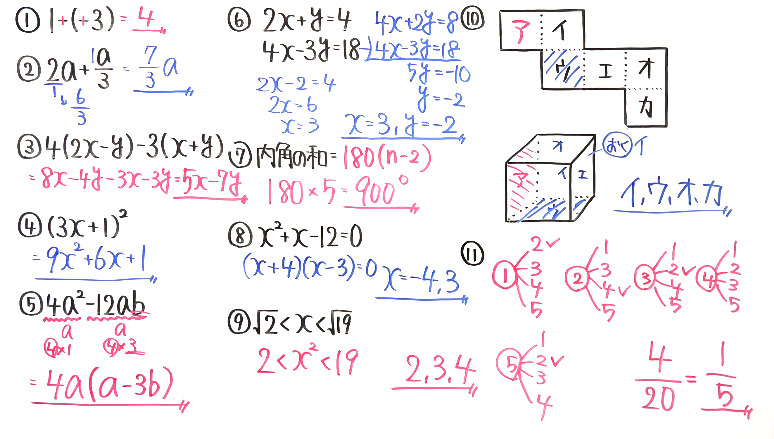 ① 1+(+3) = 4
② 2a + 1a/3 = 7/3 a
1 6/3
③ 4(2x-y)-3(x+y)
= 8x-4y-3x-3y = 5x-7y
④ (3x+1)²
= 9x²+6x+1
⑤ 4a²-12ab
a a
④×1 ④×3
= 4a(a-3b)
⑥ 2x+y=4
4x-3y=18
2x-2=4
2x=6
x=3
4x+2y=8
-)4x-3y=18
5y=-10
y=-2
x=3, y=-2
⑦ 内角の和=180(n-2)
180×5=900°
⑧ x²+x-12=0
(x+4)(x-3)=0 x=-4,3
⑨ √2<x<√19
2<x²<19 2,3,4
⑩
ア イ
ウ エ オ
カ
オ おくイ
ア イ エ
ウ
イ,ウ,オ,カ
⑪
① 2✓ 3 4 5
② 1 3 4✓ 5
③ 1 2✓ 4 5
④ 1 2 3 5
⑤ 1 2✓ 3 4
4/20 = 1/5